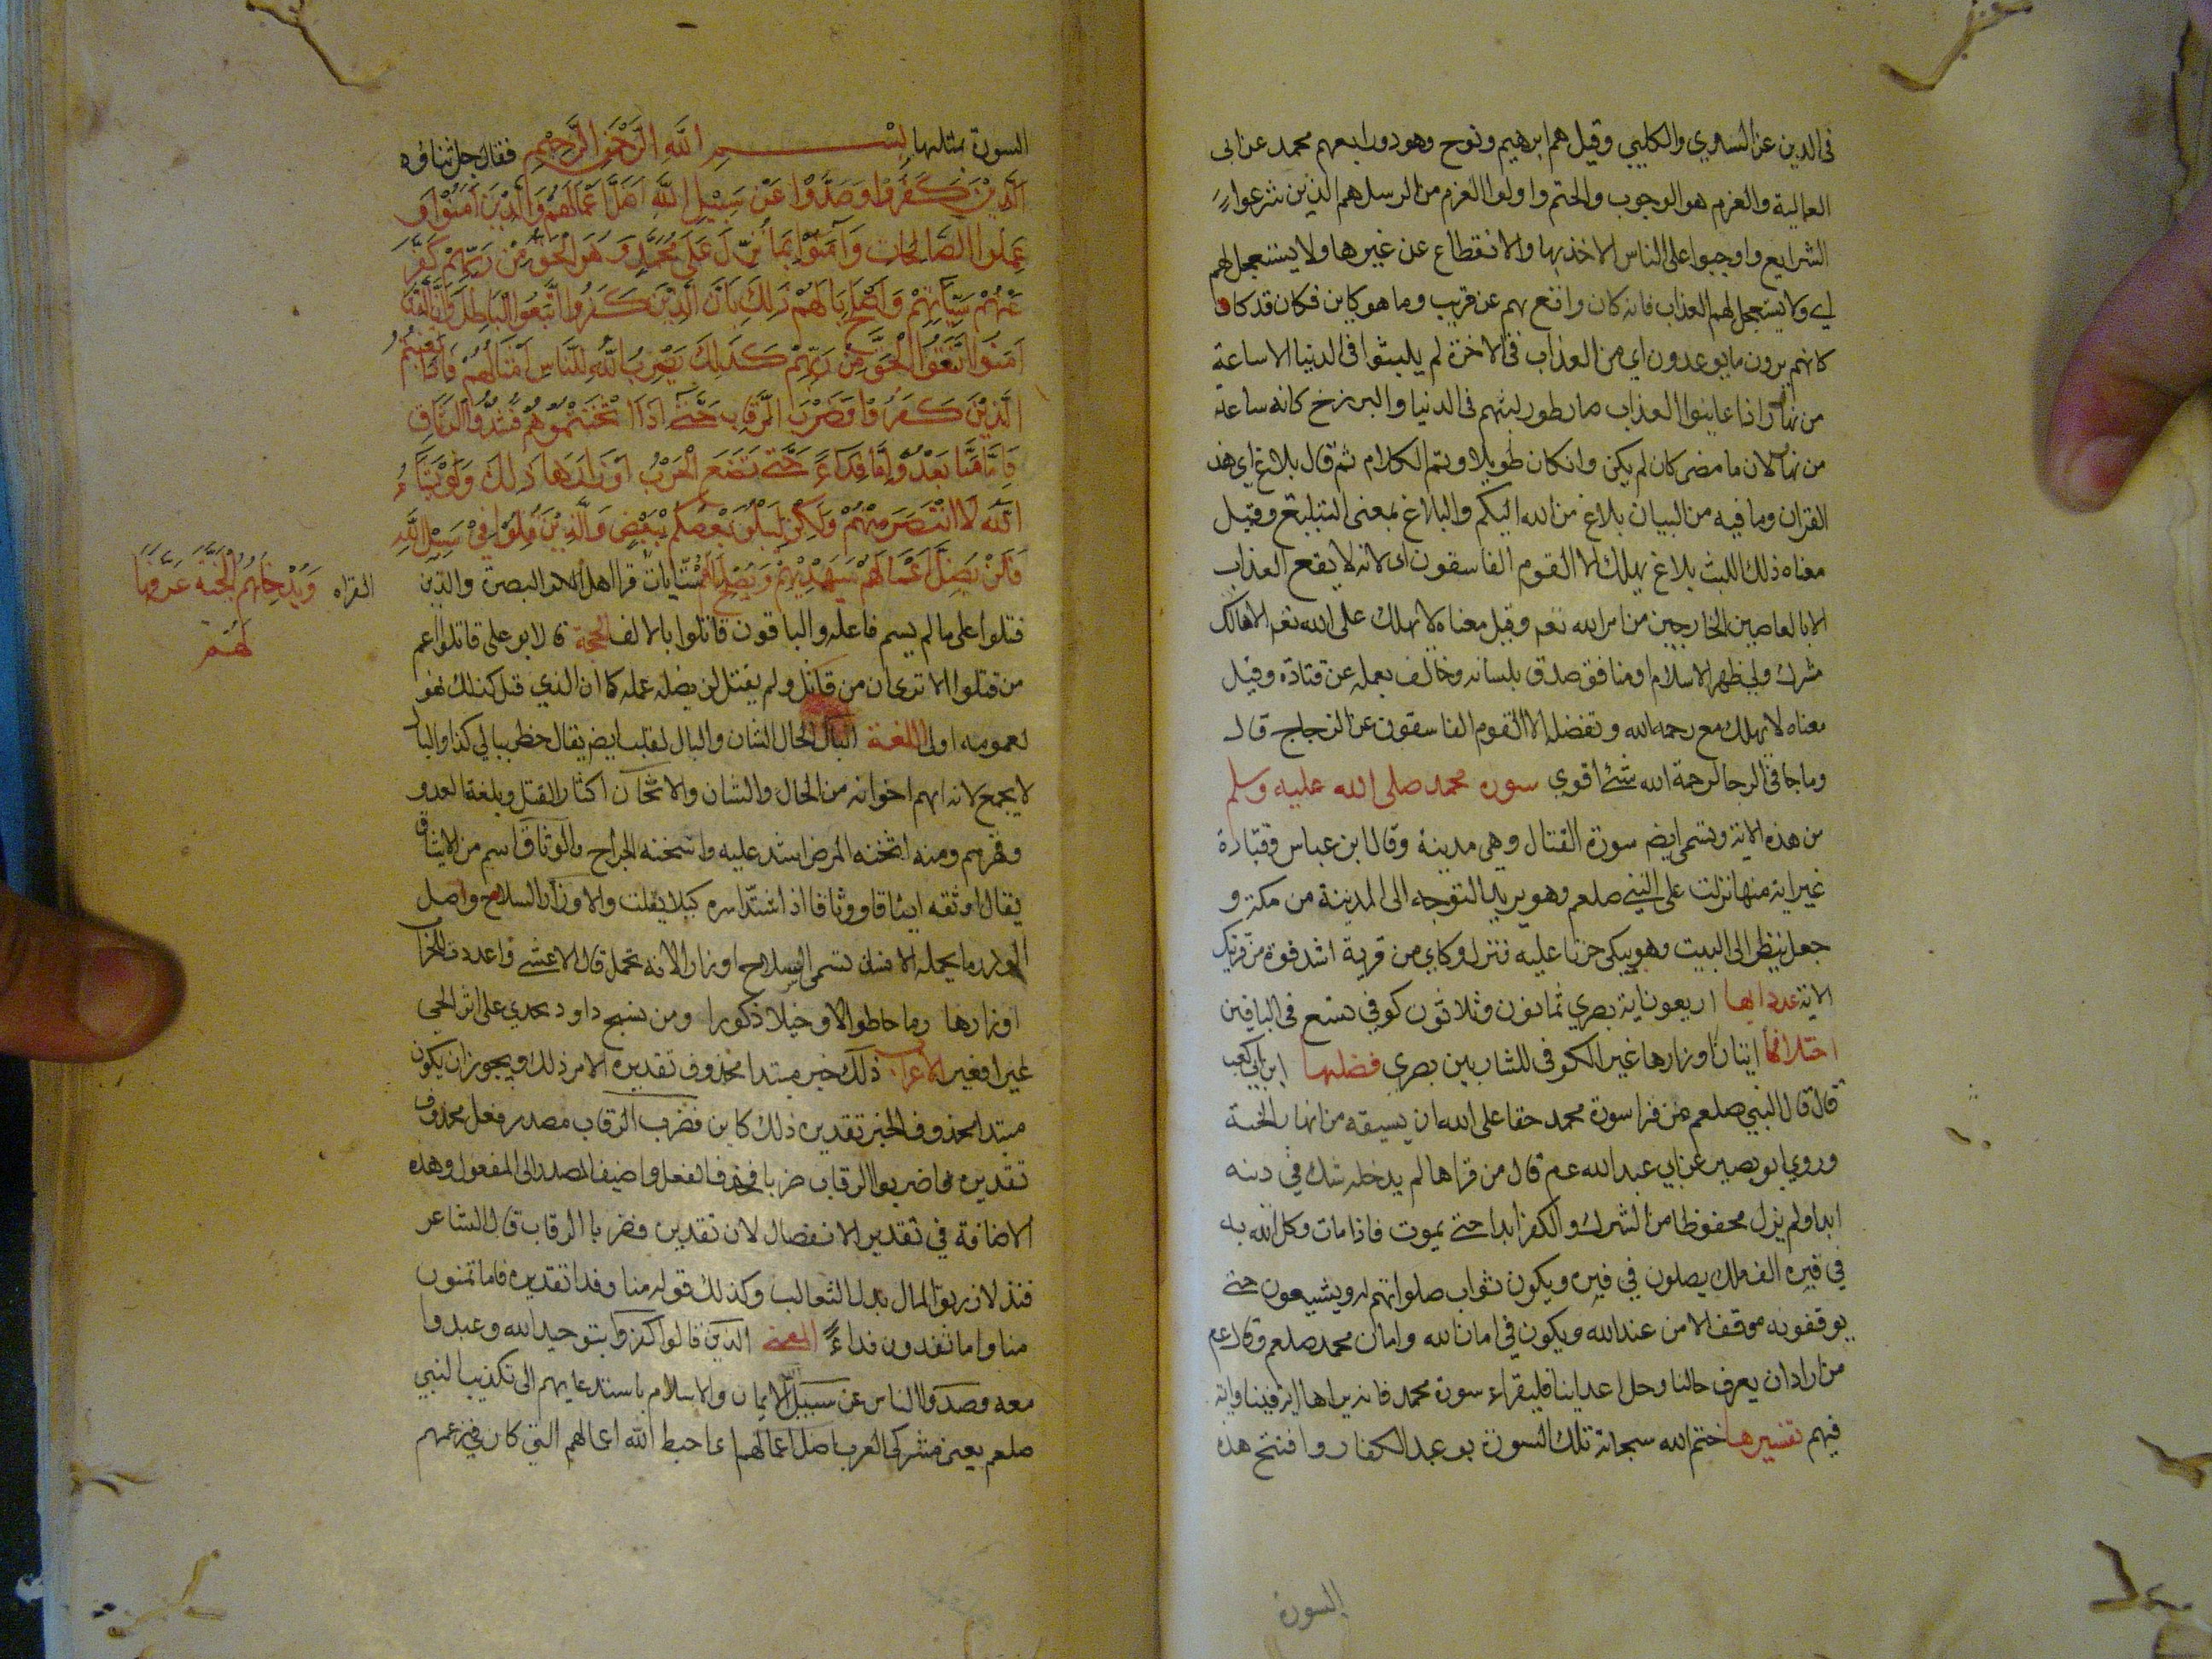 فى الدين عن السدي والكلبي وقيل هم ابرهيم ونوح وهود ورابعهم محمد عن ابى
العالية والعزم هو الوجوب والحتم واولوا العزم من الرسل هم الذين شرعوا
الشرايع واوجبوا على الناس الاخذ بها والانقطاع عن غيرها ولا يستعجل لهم
اي ولا يستعجل لهم العذاب فانه كان واقع بهم عن قريب وما هو كاين فكان قد كان
كانهم يرون ما يوعدون اي من العذاب فى الاخرة لم يلبثوا فى الدنيا الا ساعة
من نهار اذا عاينوا العذاب صار طور لبثهم فى الدنيا والبرزخ كانه ساعة
من نهار لان ما مضى كان لم يكن وانكان طويلا وتم الكلام ثم قال بلاغ اي هذا
القران وما فيه من البيان بلاغ من الله اليكم والبلاغ بمعنى التبليغ وقيل
معناه ذلك اللبث بلاغ يهلك الا القوم الفاسقون اى لانه لا يقع العذاب
الا بالعاصين الخارجين من امر الله تعم وقيل معناه لا يهلك على الله تعم الا هالك
مشرك ولى ظهره الاسلام او منافق صدق بلسانه وخالف بعمله عن قتادة وقيل
معناه لا يهلك مع رحمة الله وتفضله الا القوم الفاسقون عن الزجاج قال
وما جا فى الرجا لرحمة الله شئ اقوى سوره محمد صلى الله عليه وسلم
من هذه الاية وتسمى ايضم سورة القتال وهى مدينة وقال ابن عباس وقتادة
غير اية منها نزلت على النبي صلعم وهو يريد التوجه الى المدينة من مكة و
جعل ينظر الى البيت وهو يبكى حزنا عليه فنزل وكاي من قرية اشد قوة من قريتك
الاية عدد ايها اربعون اية بصري ثمانون وثلاثون كوفي تسع فى الباقين
اختلافها ايتان اوزارها غير الكوفى للشاربين بصري فضلها ابن ابي كعب
قال قال النبي صلعم من قرا سورة محمد حقا على الله ان يسقيه من انهار الجنة
وروي ابو بصير عن ابي عبد الله عم قال من قراها لم يدخله شك في دينه
ابدا ولم يزل محفوظا من الشرك والكفر ابدا حتى يموت فاذا مات وكل الله به
في قبره الف ملك يصلون في قبره ويكون ثواب صلواتهم له ويشيعون حتى
يوقفونه موقف الامن عند الله ويكون في امان الله وامان محمد صلعم وقال عم
من اراد ان يعرف حالنا وحل اعداينا فليقراء سورة محمد فانه يراها اية فينا واية
فيهم تفسيرها ختم الله سبحانه تلك السورة بوعيد الكفار وافتتح هذه
السورة
السورة بمثلها بسم الله الرحمن الرحيم فقال جل ثناؤه
الَّذِيْنَ كَفَرُوْا وَصَدُّوْا عَنْ سَبِيْلِ اللَّهِ اَضَلَّ اَعْمَالَهُمْ وَالَّذِيْنَ اٰمَنُوْا وَ
عَمِلُوا الصَّالِحَاتِ وَآمَنُوْا بِمَا نُزِّلَ عَلَى مُحَمَّدٍ وَهُوَ الْحَقُّ مِنْ رَبِّهِمْ كَفَّرَ
عَنْهُمْ سَيِّاٰتِهِمْ وَاَصْلَحَ بَالَهُمْ ذَلِكَ بِاَنَّ الَّذِيْنَ كَفَرُوا اتَّبَعُوا الْبَاطِلَ وَاَنَّ الَّذِيْنَ
اٰمَنُوا اتَّبَعُوا الْحَقَّ مِنْ رَبِّهِمْ كَذَلِكَ يَضْرِبُ اللَّهُ لِلنَّاسِ اَمْثَالَهُمْ فَاِذَا لَقِيْتُمُ
الَّذِيْنَ كَفَرُوْا فَضَرْبَ الرِّقَابِ حَتَّى اِذَا اَثْخَنْتُمُوْهُمْ فَشُدُّوا الْوَثَاقَ
فَاِمَّا مَنًّا بَعْدُ وَاِمَّا فِدَاءً حَتَّى تَضَعَ الْحَرْبُ اَوْزَارَهَا ذَلِكَ وَلَوْ يَشَاءُ
اللَّهُ لَانْتَصَرَ مِنْهُمْ وَلَكِنْ لِيَبْلُوَ بَعْضَكُمْ بِبَعْضٍ وَالَّذِيْنَ قُتِلُوْا فِيْ سَبِيْلِ اللَّهِ
فَلَنْ يُضِلَّ اَعْمَالَهُمْ سَيَهْدِيْهِمْ وَيُصْلِحُ بَالَهُمْ ست ايات قرا اهل البصرة والذين
القراه وَيُدْخِلُهُمُ الْجَنَّةَ عَرَّفَهَا
لَهُمْ
قتلوا على ما لم يسم فاعله والباقون قاتلوا بالالف الحجة قال ابو على قاتلوا اعم
من قتلوا الا ترى ان من قاتل ولم يقتل لن يضله عمله كما ان الذي قتل كذلك فهو
لعمومه اولى اللغة البال الحال الشان والبال القلب ايضم يقال خطر ببالي كذا والبال
لا يجمع لانه ابهم اخواته من الحال والشان والاثخان اكثار القتل وبلغة العدو
وقهرهم ومنه اثخنه المرض اشتد عليه واثخنه الجراح والوثاق اسم من الايثاق
يقال اوثقه ايثاقا ووثاقا اذا اشتد اسره كيلا يفلت والاوزار السلاح واصل
الوزر ما يحمله الانسان تسمى السلاح اوزارا لانه تحمل قال الاعشى واعددت للحرب
اوزارها رماحا طوالا وخيلا ذكورا ومن نسج داود يحدي على اثر الحي
عيرا فعيرا الاعراب ذلك خبر مبتدا محذوف تقديره الامر ذلك ويجوز ان يكون
مبتدا محذوف الخبر تقديره ذلك كاين فضرب الرقاب مصدر فعل محذوف
تقديره فاضربوا الرقاب ضربا فحذف الفعل واضيف المصدر الى المفعول وهذه
الاضافة في تقدير الانفصال لان تقديره فضربا الرقاب قال الشاعر
فندلا زريق المال ندل الثعالب وكذلك قوله منا وفدا تقديره فاما تمنون
منا واما تفدون فداءً المعنى الذين قالوا كفروا بتوحيد الله وعبدوا
معه وصدوا الناس عن سبيل الايمان والاسلام باستدعايهم الى تكذيب النبي
صلعم يعنى مشركى العرب اضل اعمالهم اى احبط الله اعمالهم التي كان في زعمهم